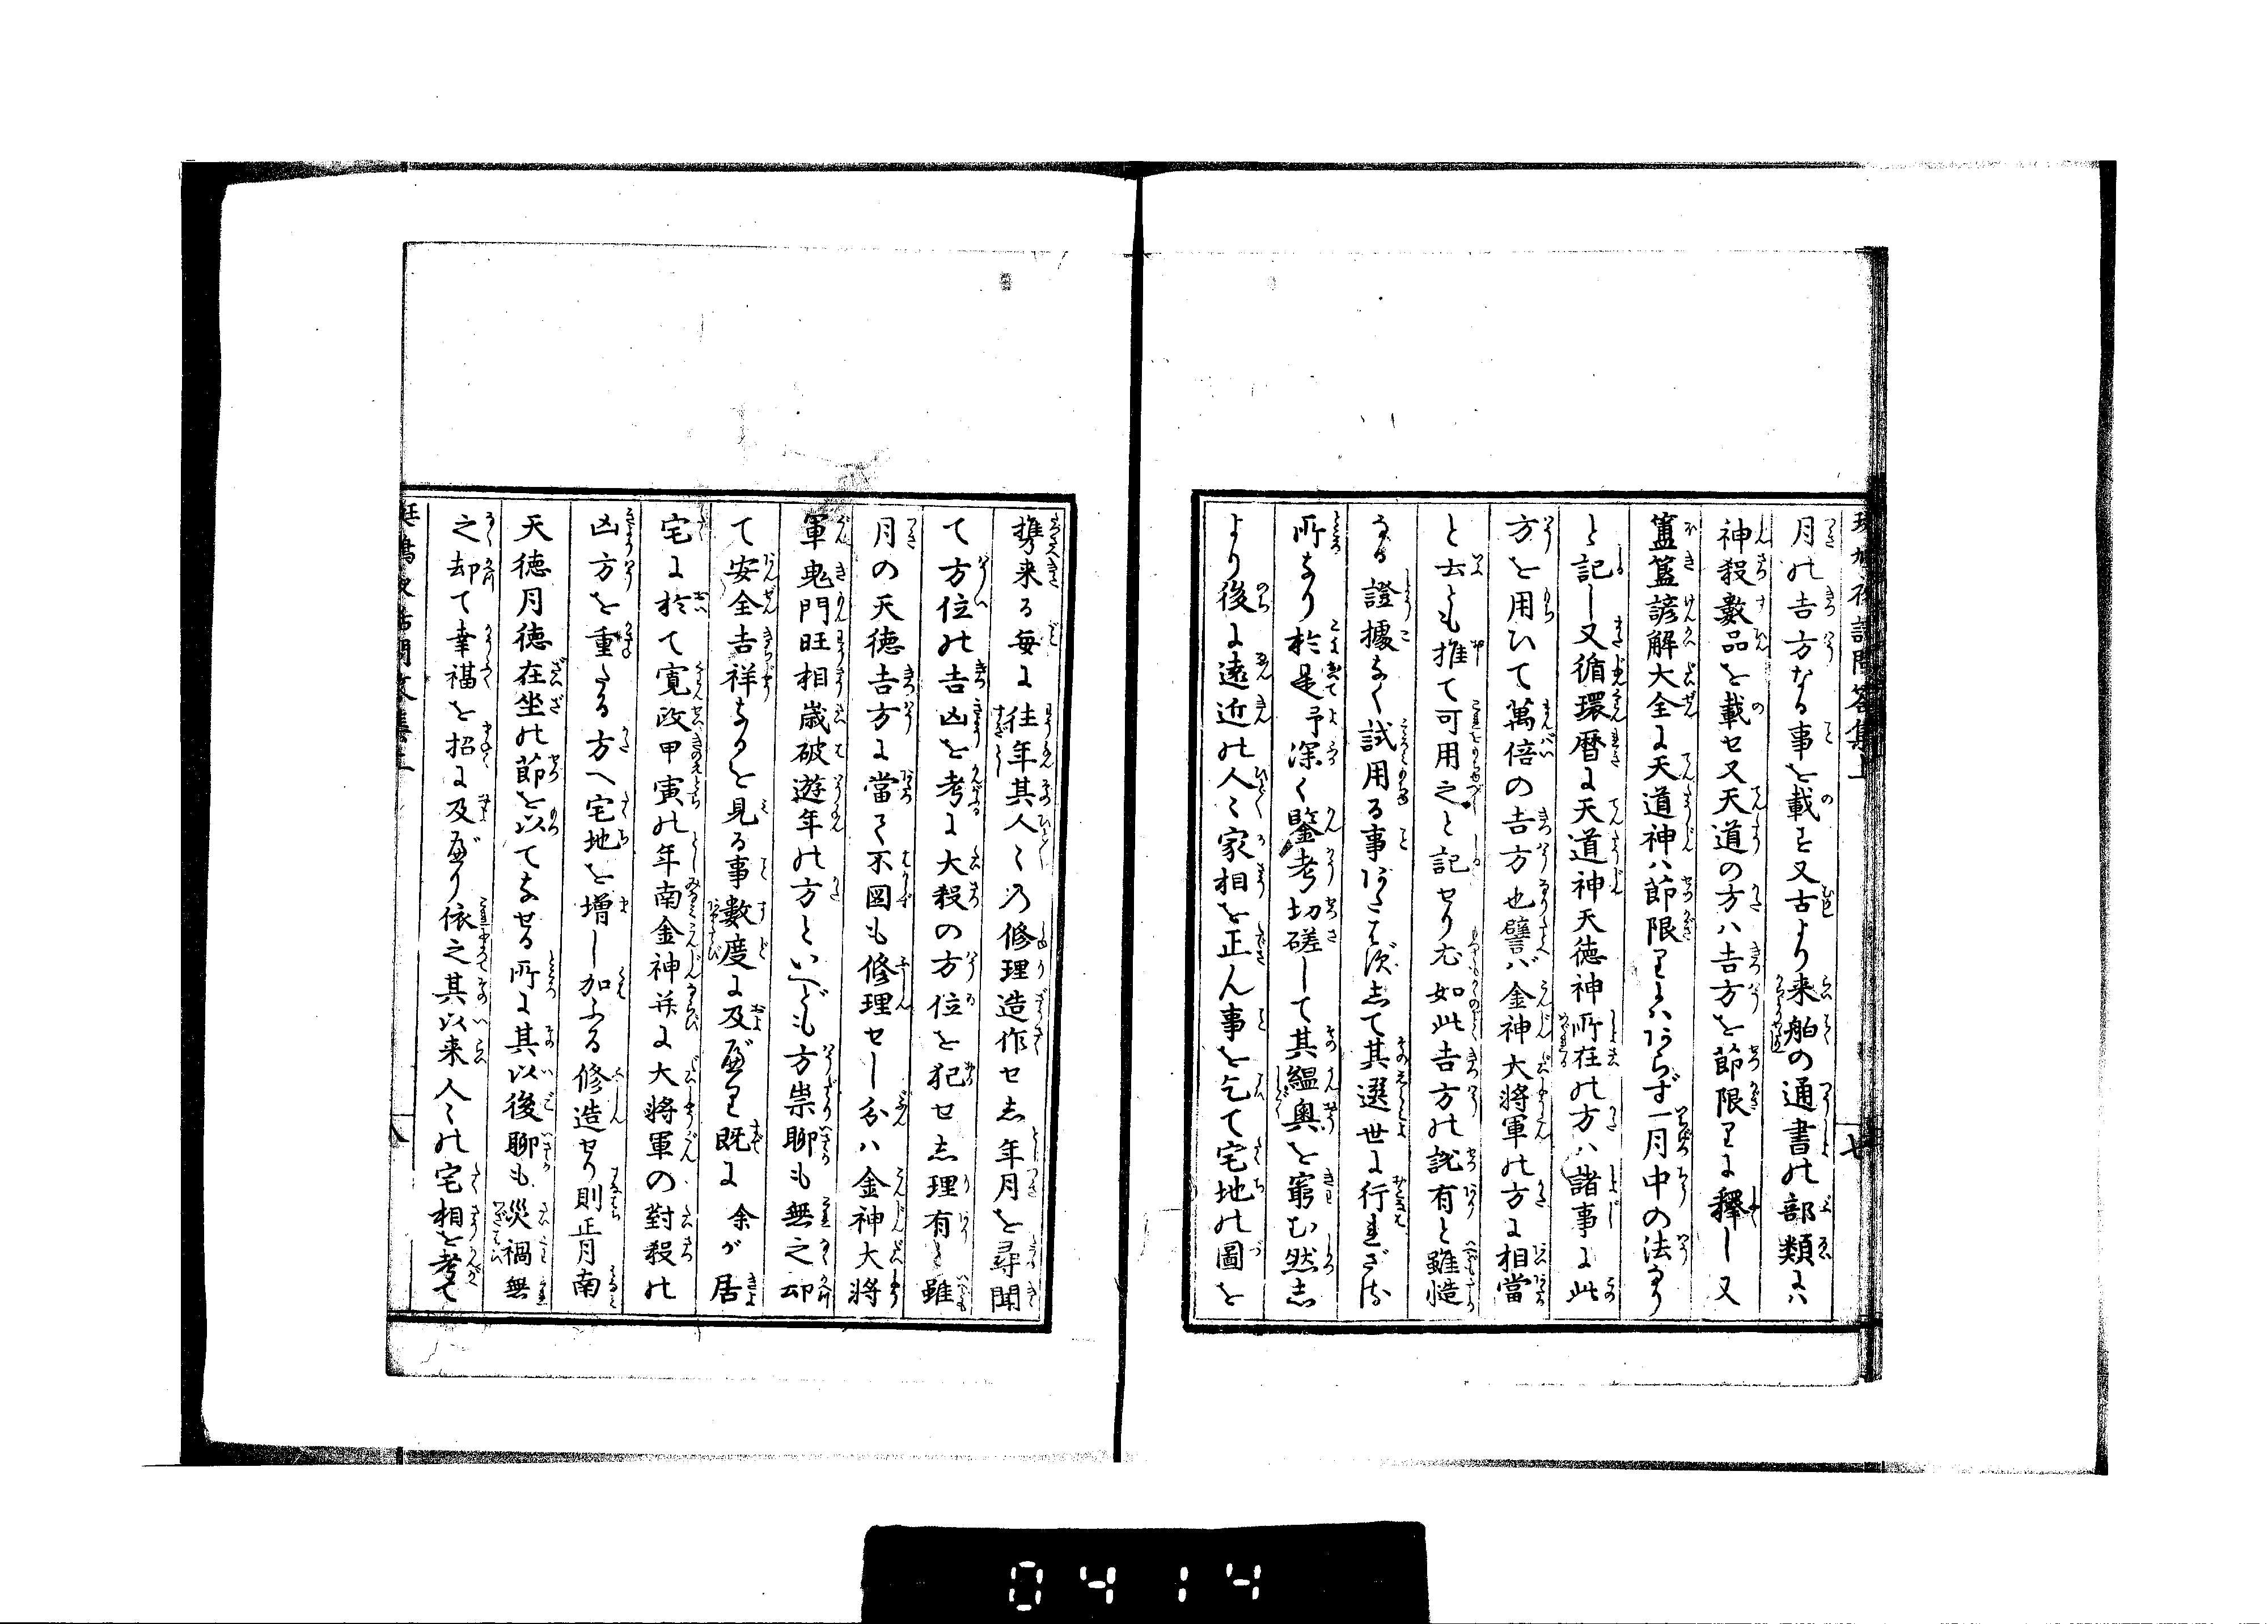 月の吉方なる事を載す又古より来舶の通書の部類には
神殺數品を載セ又天道の方ハ吉方を節限りに釋し又
簠簋諺解大全に天道神ハ節限りにハあらず一月中の法なり
と記し又循環暦に天道神天徳神所在の方ハ諸事に此
方を用ひて萬倍の吉方也譬バ金神大将軍の方に相當
と云とも推て可用之と記せり尤如此吉方の説有と雖慥
なる證據なく試用る事あたはずして其選世に行れざる
所なり於是予深く鑒考切磋して其縕奥を窮む然し
より後に遠近の人〻家相を正ん事を乞て宅地の圖を
携来る毎に往年其人〻の修理造作せし年月を尋聞
て方位の吉凶を考に大殺の方位を犯せし理有と雖
月の天徳吉方に當て不図も修理せし分ハ金神大将
軍鬼門旺相歳破遊年の方といへども方祟聊も無之却
て安全吉祥なるを見る事數度に及べり既に余が居
宅に於て寛政甲寅の年南金神并に大将軍の對殺の
凶方を重たる方へ宅地を増し加ふる修造せり則正月南
天徳月徳在坐の節を以てなせる所に其以後聊も災禍無
之却て幸福を招に及べり依之其以来人〻の宅相を考て
八